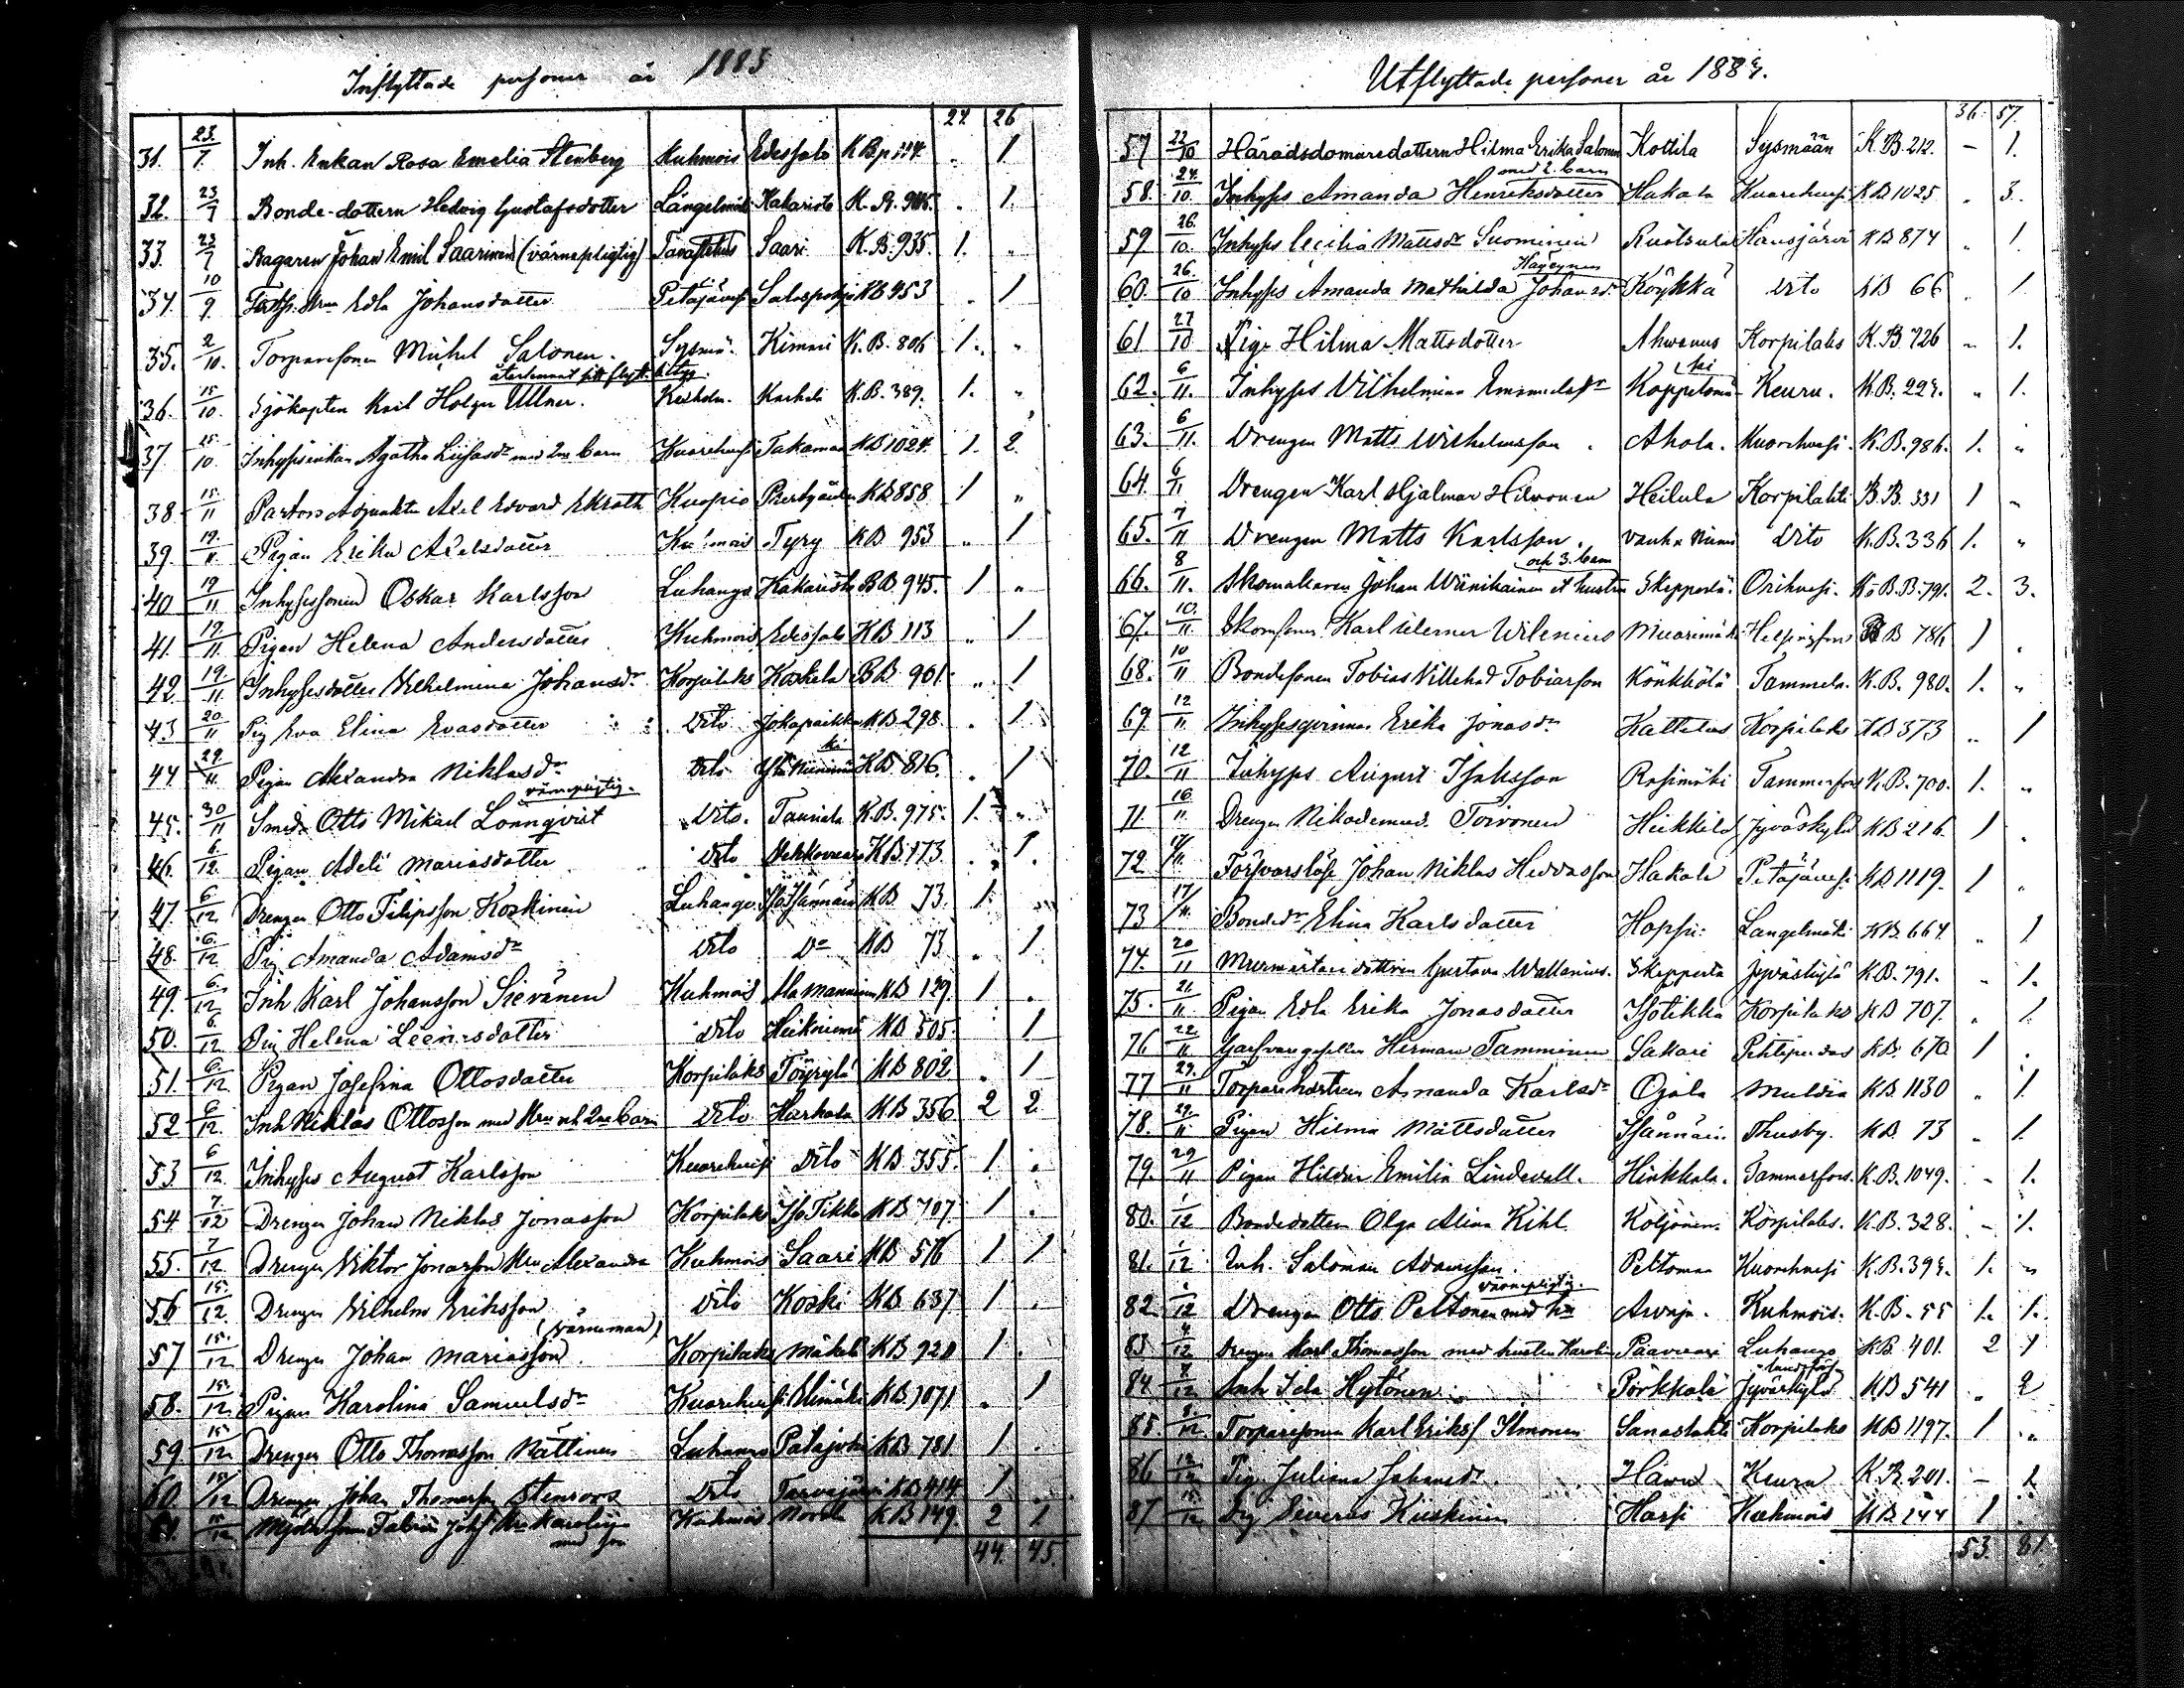 Inflyttade personer år 1885
27 26
31. 23/7 Inh. Enkan Rosa Emelia Stenberg Kuhmois Edessalo KB p 114. „ 1
32. 23/7 Bonde-dottern Hedvig Gustafsdotter Längelmäki Kakaristo K.B. 945. „ 1.
33. 23/7 Bagaren Johan Emil Saarinen (värnepligtig) Tavastehus Saari K.B. 935. 1. „
34. 10/9 Edla Johansdotter Petäjävesi Salospohja KB 953 „ 1
35. 2/10. Torparesonen Mickel Salonen. Sysmä. Kimari K.B. 806 1. „
återlemnat sitt flytt. betyg.
36. 15/10. Sjökapten Karl Holger Ullner. Kexholm. Karhula K.B. 389. 1. „
37 25/10. Inhysesenkan Agatha Lisasdr med 2ne barn Kuorehvesi Takamaa KB 1024. 1. 2.
38 15./11 Pastors Adjunkten Axel Edvard Ekroth Kuopio Prestgården KB 858 1 „
39. 19./11. Pigan Erika Axelsdotter Kuhmois Tyry KB 953 „ 1
40 19/11 Inhysessonen Oskar Karlsson Luhango Kakaristo BB 945. 1 „
41. 19/11. Pigan Helena Andersdotter Kuhmois Edessalo KB 113 „ 1
42 19/11 Inhysesdotter Vilhelmina Johansdr Korpilaks Koskela BB 901 „ 1
43 20/11 Pig Eva Elina Evasdotter Dito Jokapaikka KB 298 „ 1
44. 29/11. Pigan Alexandra Niklasdr Dito Yli Nisinmäki KB 816. „ 1
värnepligtig.
45. 30/11 Smed Otto Mikael Lönnqvist Dito. Tauriala K.B. 975. 1. „
46. 6/12. Pigan Adeli Mariasdotter Dito Vehkovuori KB 173 „ 1.
47. 6/12 Drengen Otto Filipsson Koskinen Luhango Iso Isännäin KB 73. 1. „
48. 6./12 Pig Amanda Adamsdr Dito Do KB 73. „ 1
49. 6./12 Inh Karl Johansson Sievänen Kuhmois Ala Manninen KB 129 1 .
50. 6./12 Pig Helena Leenasdotter Dito Heikniemi KB 505. 1
51. 6./12 Pigan Josefina Ottosdotter Korpilaks Töyrylä KB 802 „ 1
52 6/12. Inh Niklas Ottosson med Hru och 2ne barn Dito Harkala KB 356 2 2
53 6/12. Inhyses August Karlsson Kuorehvesi Dito KB 355. 1 .
54. 7./12 Drengen Johan Niklas Jonasson Korpilaks Iso Tikka KB 707 1 .
55. 7/12. Drengen Viktor Jonasson Hru Alexandra Kuhmois Saari KB 576 1 1
56 15./12. Drengen Vilhelm Eriksson Dito Koski KB 637 1 .
(värneman)
57 15./12 Drengen Johan Mariasson. Korpilaks Mäkelä KB 920 1 .
58. 15./12. Pigan Karolina Samuelsdr Kuorehvesi Alimäki KB 1071 „ 1
59 15/12. Drengen Otto Thomasson Mattinen Luhango Patajoki KB 781 1 .
60. 15/12 Drengen Johan Thomasson Stenroos Dito Torvajärvi KB 414 1 .
61. 15/12 Karolina Kuhmois KB 149 2 1
med son
44. 45.
Utflyttade personer år 1885.
36. 57.
57 22/10 Häradsdomaredottern Hilma Erika Salonen Kottila Sysmään K.B. 212. – 1.
med 2. barn
58. 24./10. Inhyses Amanda Henriksdotter Hakala Kuorehvesi KB 1025 „ 3.
59 26./10. Inhyses Cecilia Mattsdr Suominen Ruolsula Hausjärvi KB 874 „ 1.
60. 26./10 Inhyses Amanda Mathilda Johansdr Köykkä Dito KB 66 „ 1
61 27/10 Pigan Hilma Mattsdotter Ahvenus Korpilaks K.B. 726 „ 1.
62. 6/11. Inhyses Vilhelmina Emanuelsdr Koppelomäki Keuru. K.B. 224. „ 1.
63. 6/11. Drengen Matts Wilhelmsson. Ahola. Kuorehvesi. K.B. 986. 1. „
64. 6/11 Drengen Karl Hjalmar Hilvonen Heilula Korpilahti B.B. 331 1 „
65. 7/11 Drengen Matts Karlsson. Vanha Niemi Dito K.B. 336 1. „
och 3. barn
66. 8/11. Skomakaren Johan Wiinikainen et hustru Skepperlä. Orihvesi. K.B.B. 791. 2. 3.
67. 10./11. Skomakaren Karl Werner Wilenius Muurimäki Helsingfors BB 786 1 .
68. 10/11 Bondesonen Tobias Villehad Tobiasson Könkkölä Tammela. K.B. 980. 1. „
69. 12/11. Inhysesqvinnan Erika Jonasdr Kattelus Korpilaks KB 373 „ 1
70. 12/11 Inhyses August Isaksson Rasimäki Tammerfors K.B. 700. 1. „
71. 16./11. Drengen Nikodemus Toivonen Heikkilä Jyväskylä KB 216. 1 .
72. Försvarslöse Johan Niklas Hedvasson Hakala Petäjävesi KB 1119. 1 .
73 17/11. Bondedr Elina Karlsdotter Hopsu Längelmäki KB. 664. „ 1
74. 20/11 Murmästaredottren Gustava Wallenius. Skepperlä Jyväskylä K.B. 791. „ 1.
75. 21./11. Pigan Edla Erika Jonasdotter Isotikka Korpilaks KB 707. „ 1.
76 22./11 Garfvaregesellen Herman Tamminen Sakari KB. 670 1 .
77 29./11 Torparehustrun Amanda Karlsdr Ojala Muldia KB. 1130 „ 1.
78. 29./11 Pigan Hilma Mattsdotter Isännäin Thusby. KB. 73 „ 1.
79. 29/11 Pigan Hilda Emilia Lindevall. Hinkkala. Tammerfors. K.B. 1049. – 1.
80. 1/12 Bondedottern Olga Alina Kihl. Koljonen. Korpilaks. K.B. 328. – 1.
81. 1/12 Inh. Salomon Adamsson. Peltoman Kuorehvesi K.B. 394. 1. „
värnepligtig.
82. 1/12 Drengen Otto Peltonen med hu Arvaja. Kuhmois. K.B. 55 1. 1.
83 4/12 Drengen Karl Thomasson med hustru Karolin Paavuori Luhango KB 401. 2 1
84 7./12 Inh Ida Hytönen. Pörkkälä Jyväskylä KB 541 „ 2
85 8./12 Torparesonen Karl Eriks/ Ilmonen Sanastahti Korpilaks KB 1197. 1 „
86 12/12 Pig. Juliana Johansdr. Hävu Keuru K.B. 201. – 1
87 15./12 Dr Severus Kuskinen Harsi Kuhmois KB 144 1 .
53. 81.